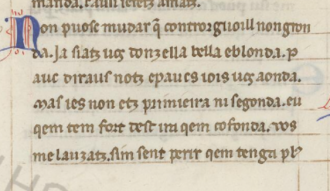 manda. 
Non puosc mudar q̄ controrguoill non gron
da. Ja siatz uos donzella bella eblonda. p
auc diraus notz epaucs iois uos aonda.
mas ies non etz primieira ni segonda. eu
qem tem fort dest ira qem cofonda. uos
me lauzatz. sim sent perir qem tenga pl'